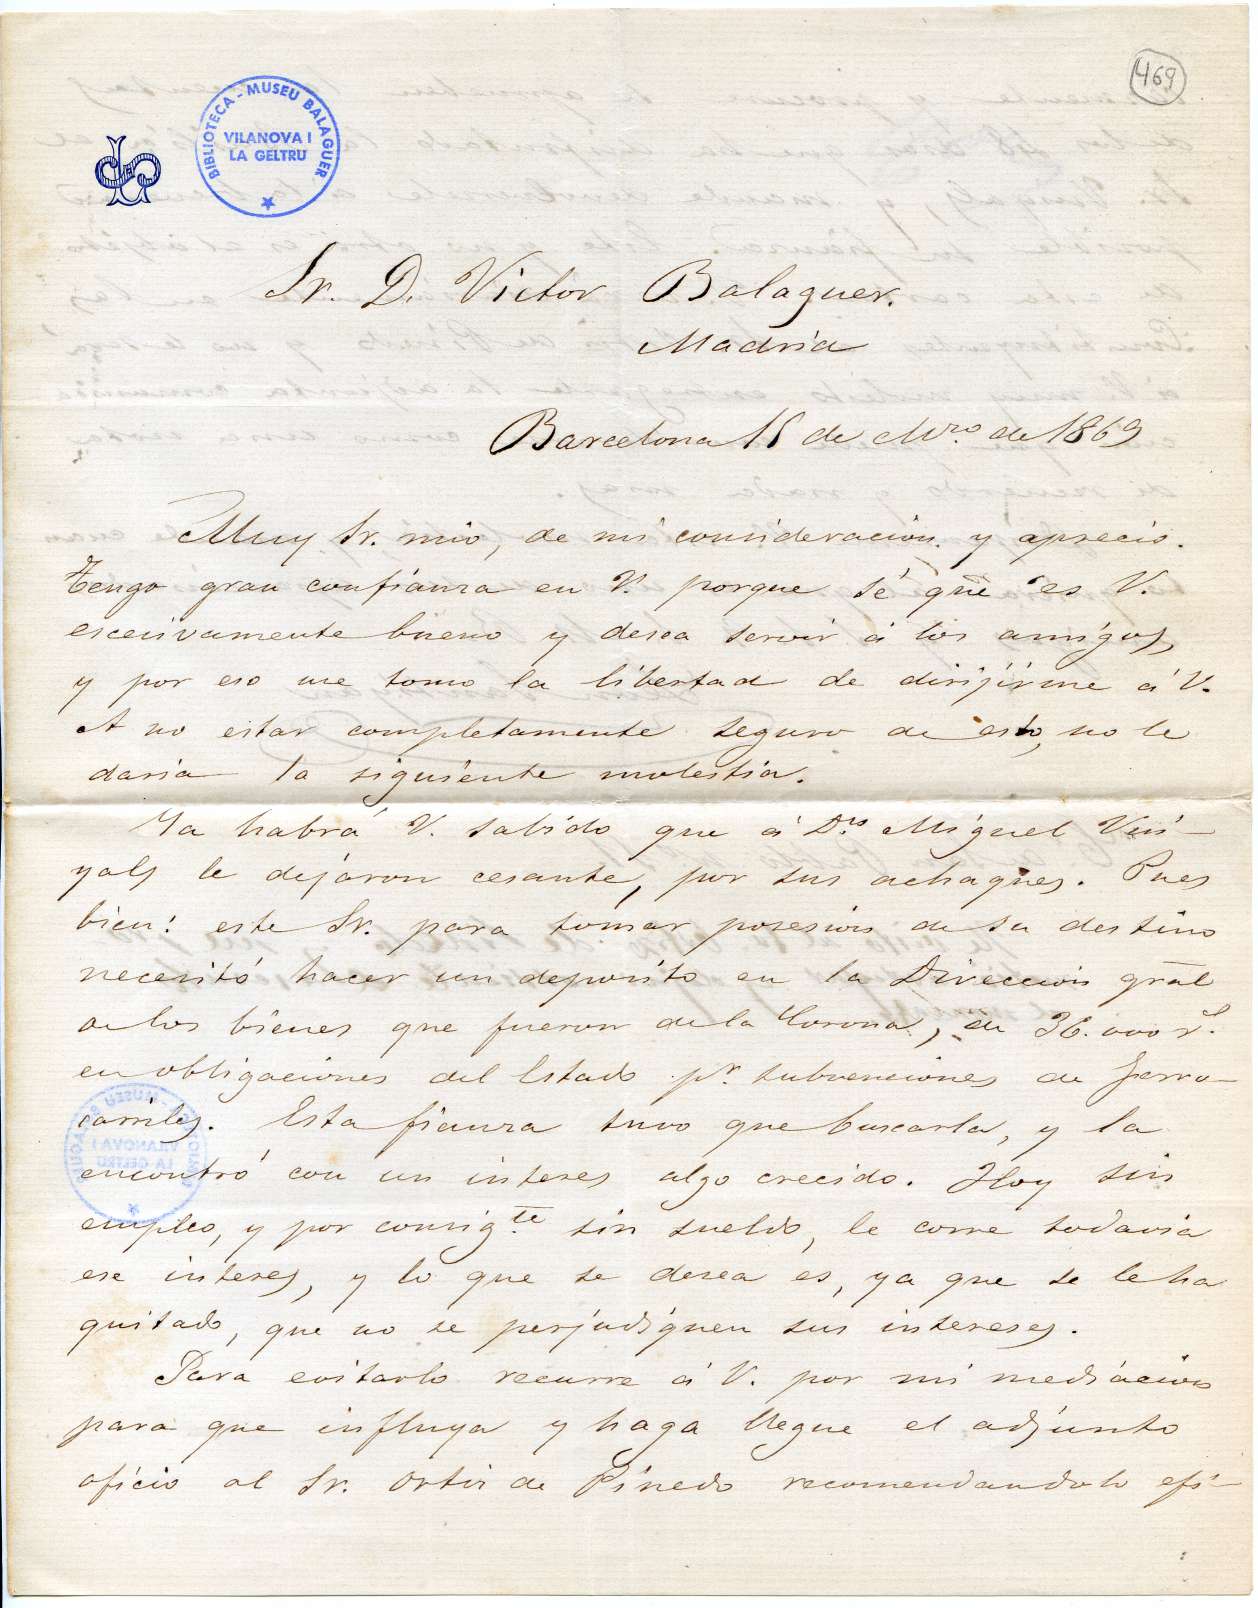 469
BIBLIOTECA - MUSEU BALAGUER
VILANOVA I
LA GELTRU
Sr. D. Victor Balaguer.
Madrid
Barcelona 15 de Mzo. de 1869
Muy Sr. mio, de mi consideracion y aprecio.
Tengo gran confianza en V. porque sé que es V.
escesivamente bueno y desea servir á los amigos,
y por eso me tomo la libertad de dirijirme á V.
A no estar completamente seguro de esto, no le
daria la siguiente molestia.
Ya habrá V. sabido que á Dn. Miguel Vin-
yals le dejáron cesante, por sus achaques. Pues
bien: este Sr. para tomar posesion de su destino
necesitó hacer un deposito en la Direccion gral
de los bienes que fueron de la Corona, de 36.000 rs.
en obligaciones del Estado pr. subvenciones de ferro-
carriles. Esta fianza tuvo que buscarla, y la
encontró con un interes algo crecido. Hoy sin
empleo, y por consigte. sin sueldo, le corre todavia
ese interes, y lo que se desea es, ya que se le ha
quitado, que no se perjudiquen sus intereses.
Para evitarlo recurre á V. por mi mediacion
para que influya y haga llegue el adjunto
oficio al Sr. Ortiz de Pinedo recomendandolo efi-